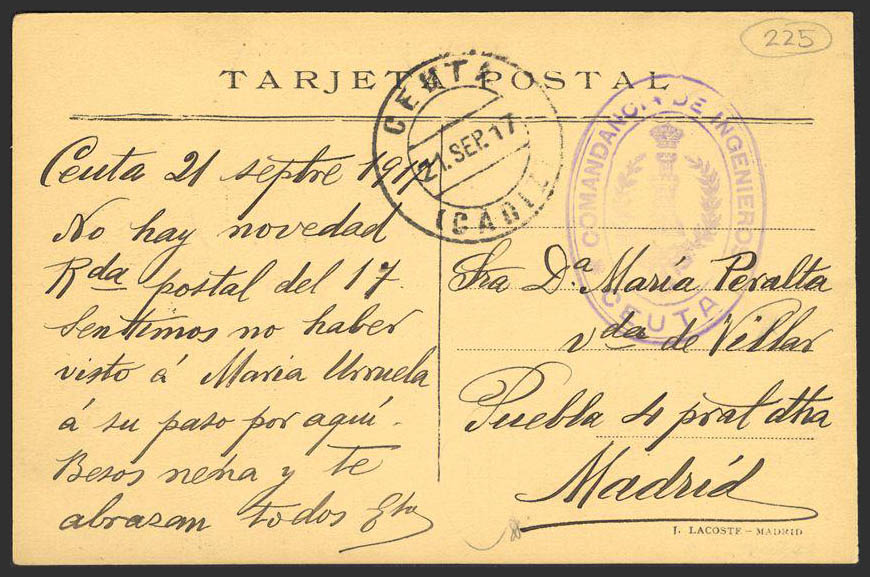 225
TARJETA POSTAL
CEUTA
21. SEP. 17
(CADIZ)
COMANDANCIA DE INGENIEROS
CEUTA
Ceuta 21 septre 1917
No hay novedad
Rda postal del 17.
Sentimos no haber
visto á Maria Urruela
á su paso por aquí.
Besos nena y te
abrazan todos
Sra Dª María Peralta
vda de Villar
Puebla 4 pral dha
Madrid
J. LACOSTE - MADRID